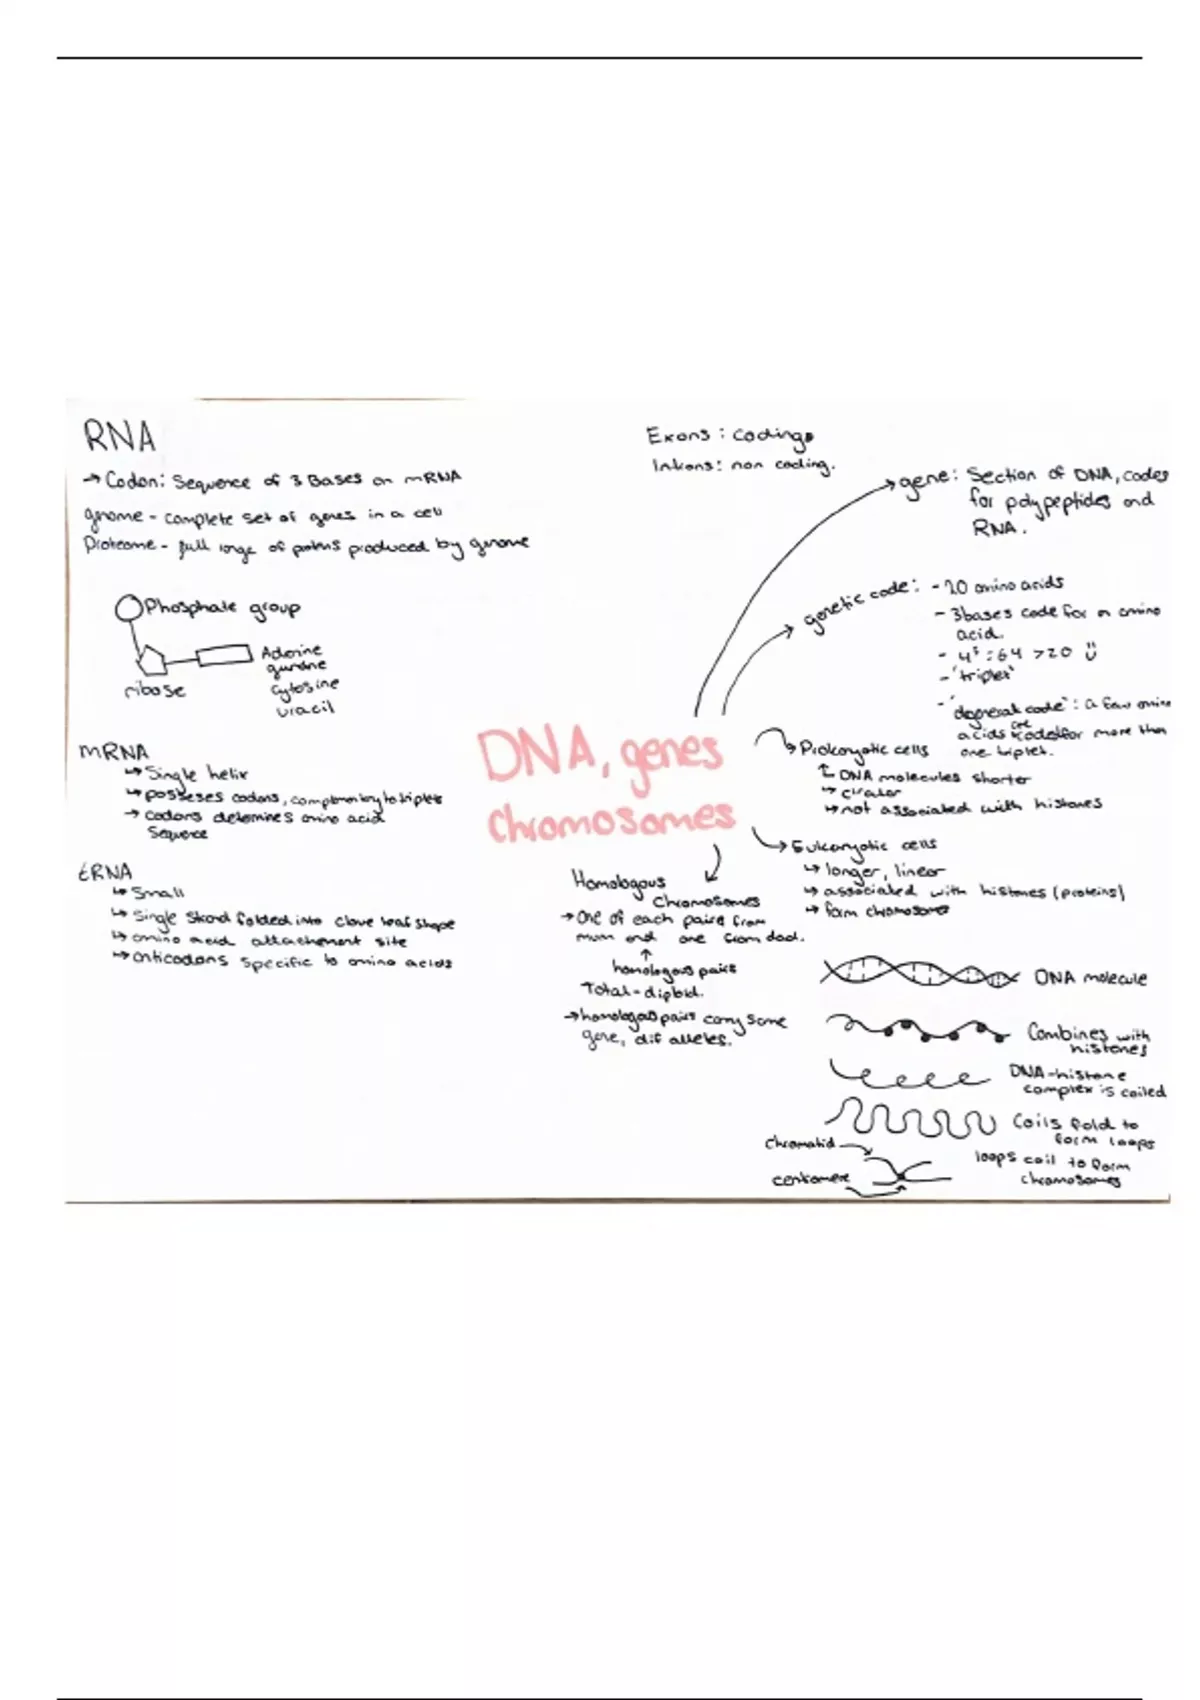 RNA
→ Codon: Sequence of 3 Bases on mRNA
gnome - complete set of genes in a cell
Proteome - full range of protns produced by gnome
Phosphate group
Adenine
guanine
cytosine
uracil
ribose
mRNA
↳ Single helix
↳ posseses codons, complementary to triplets
→ codons determines amino acid
Sequence
tRNA
↳ Small
↳ Single Strand folded into clove leaf shape
↳ amino acid attachement site
↳ anticodons specific to amino acids
DNA, genes
chromosomes
Exons : coding
Introns: non coding.
gene: Section of DNA, codes
for polypeptides and
RNA.
genetic code: - 20 amino acids
- 3 bases code for an amino
acid.
- 4³ = 64 > 20
- 'triplet'
- 'degenerate code': a few amino
acids are coded for more than
one triplet.
Prokaryotic cells
↳ DNA molecules shorter
↳ circular
↳ not associated with histones
Eukaryotic cells
↳ longer, linear
↳ associated with histones (proteins)
↳ form chromosome
Homologous
Chromosomes
→ One of each paire from
mum and one from dad.
↑
homologous pairs
Total - diploid.
→ homologous pairs carry same
gene, dif alleles.
DNA molecule
Combines with
histones
DNA-histone
complex is coiled
Coils fold to
form loops
loops coil to form
chromosomes
chromatid
centromere